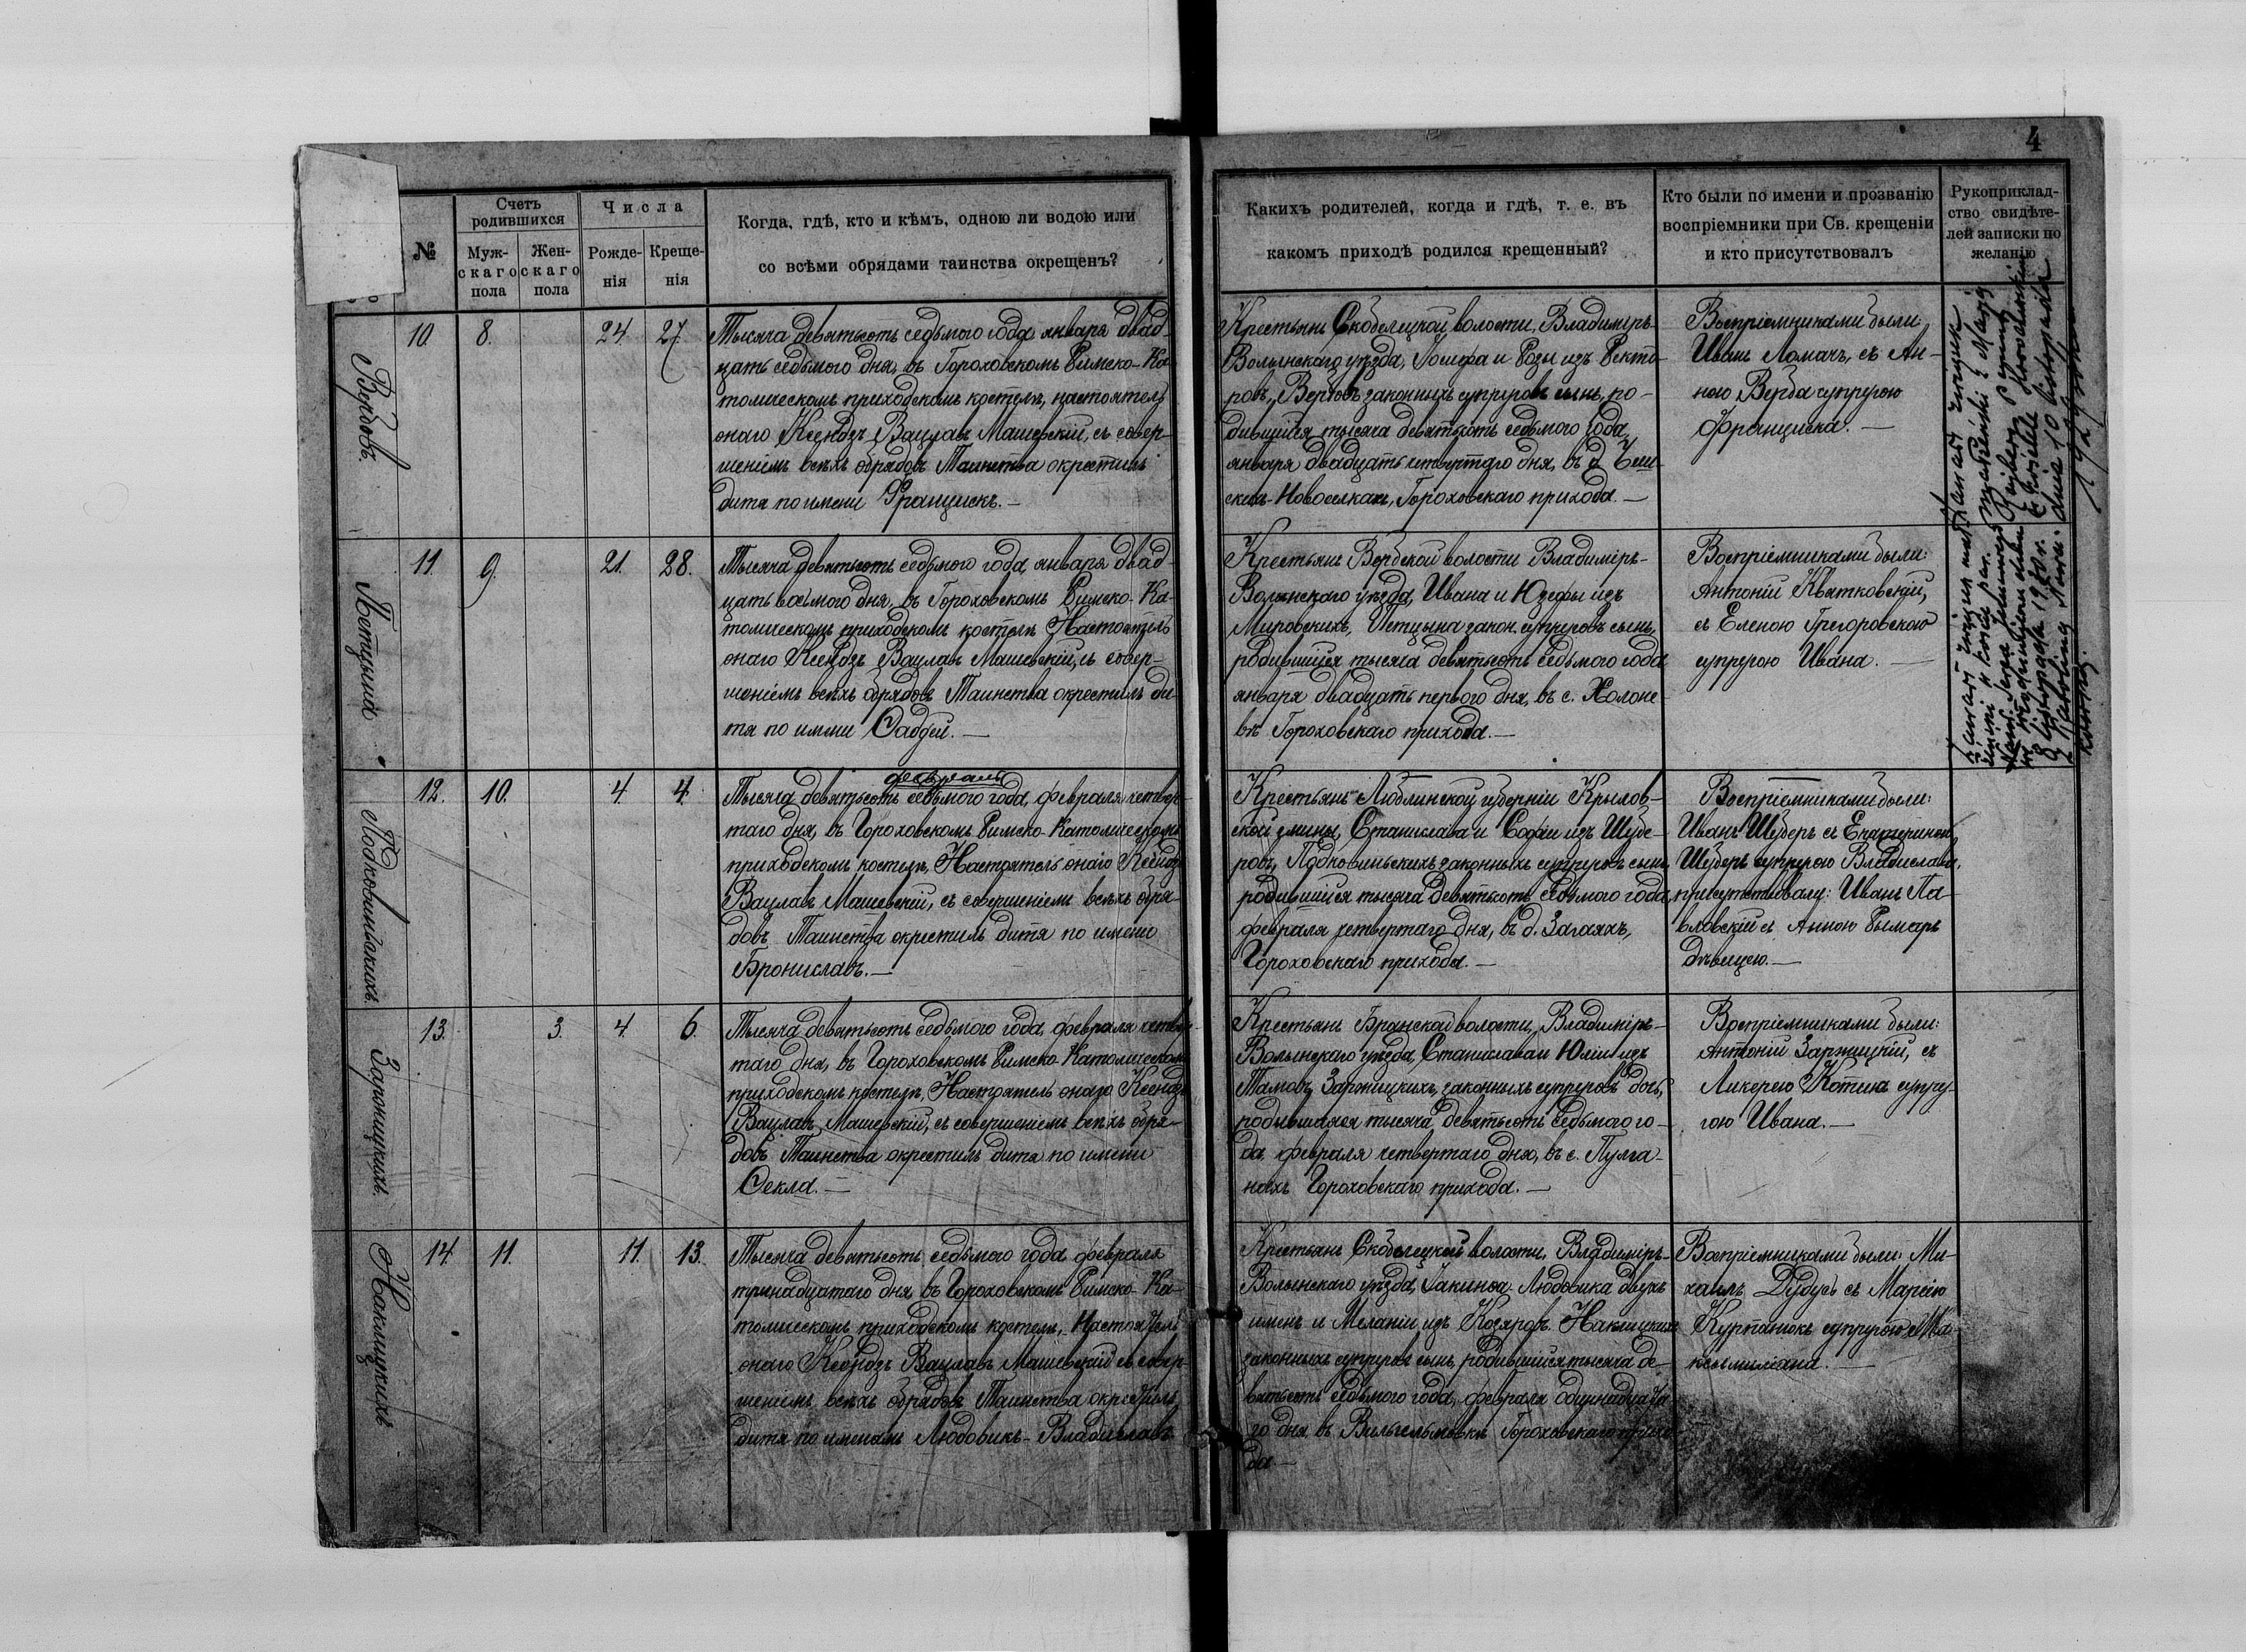 4
№
Счетъ родившихся
Муж-
скаго
пола
Жен-
скаго
пола
Числа
Рожде-
нія
Креще-
нія
Когда, гдѣ, кто и кѣмъ, одною ли водою или
со всѣми обрядами таинства окрещенъ?
Какихъ родителей, когда и гдѣ, т. е. въ
какомъ приходѣ родился крещенный?
Кто были по имени и прозванію
воспріемники при Св. крещеніи
и кто присутствовалъ
Рукоприклад-
ство свидѣте-
лей записки по
желанію
Вербовъ.
10. 8. 24 27
Тысяча девятьсотъ седьмого года января двад-
цать седьмого дня, въ Гороховскомъ Римско-Ка-
толическомъ приходскомъ костелѣ, настоятель
онаго Ксендзъ Вацлавъ Машевскій, съ совер-
шеніемъ всѣхъ обрядовъ Таинства окрестилъ
дитя по имени Францискъ.—
Крестьянъ Скобелецкой волости, Владиміръ-
Волынскаго уѣзда, Іосифа и Розы изъ
Вербовъ законныхъ супруговъ сынъ, ро-
дившійся тысяча девятьсотъ седьмого года
января двадцать четвертаго дня, въ д.
Новоселкахъ, Гороховскаго прихода.—
Воспріемниками были
Иванъ Ломачъ, съ Ан-
ною Верба супругою
Франциска.—
11. 9. 21. 28.
Тысяча девятьсотъ седьмого года, января двад-
цать восьмого дня, въ Гороховскомъ Римско-Ка-
толическомъ приходскомъ костелѣ Настоятель
онаго Ксендзъ Вацлавъ Машевскій, съ совер-
шеніемъ всѣхъ обрядовъ Таинства окрестилъ ди-
тя по имени Фаддей.—
Крестьянъ Вербской волости Владиміръ-
Волынскаго уѣзда, Ивана и Юзефы изъ
Мировскихъ, закон. супруговъ сынъ,
родившійся тысяча девятьсотъ седьмого года
января двадцать первого дня, въ с. Холоне-
вѣ Гороховскаго прихода.—
Воспріемниками были:
Антоній Квятковскій,
съ Еленою Грегоровскою
супругою Ивана.—
dnia 10 listopada
1929
Подковинскихъ.
12. 10. 4. 4.
февраля
Тысяча девятьсотъ седьмого года, февраля четвер-
таго дня, въ Гороховскомъ Римско-Католическомъ
приходскомъ костелѣ, Настоятель онаго Ксендзъ
Вацлавъ Машевскій, съ совершеніемъ всѣхъ обря-
довъ Таинства окрестилъ дитя по имени
Брониславъ.—
Крестьянъ Люблинской губерніи Крылов-
ской гмины, Станислава и Софіи изъ Шубе-
ровъ, Подковинскихъ законныхъ супруговъ сынъ,
родившійся тысяча девятьсотъ седьмого года,
февраля четвертаго дня, въ д. Загаяхъ,
Гороховскаго прихода.—
Воспріемниками были:
Иванъ Шуберъ съ Екатериною
Шуберъ супругою Владислава,
присутствовали: Иванъ Па-
вловскій съ Анною Рымаръ
дѣвицею.—
Заржицкихъ.
13. 3. 4. 6.
Тысяча девятьсотъ седьмого года, февраля четвер-
таго дня, въ Гороховскомъ Римско-Католическомъ
приходскомъ костелѣ, Настоятель онаго Ксендзъ
Вацлавъ Машевскій, съ совершеніемъ всѣхъ обря-
довъ Таинства окрестилъ дитя по имени
Фекла.—
Крестьянъ Бранской волости, Владиміръ-
Волынскаго уѣзда, Станислава и Юліи изъ
Заржицкихъ, законныхъ супруговъ дочь,
родившаяся тысяча девятьсотъ седьмого го-
да февраля четвертаго дня, въ с. Пулга-
нахъ Гороховскаго прихода.—
Воспріемниками были:
Антоній Заржицкій, съ
Ликерею Котика супру-
гою Ивана.—
Наклицкихъ
14. 11. 11. 13.
Тысяча девятьсотъ седьмого года февраля
тринадцатаго дня, въ Гороховскомъ Римско-Ка-
толическомъ приходскомъ костелѣ, Настоятель
онаго Ксендзъ Вацлавъ Машевскій съ совер-
шеніемъ всѣхъ обрядовъ Таинства окрестилъ
дитя по именамъ Людовикъ-Владиславъ
Крестьянъ Скобелецкой волости, Владиміръ-
Волынскаго уѣзда, Іакинфа-Людовика двухъ
именъ и Меланіи изъ Козяровъ Наклицкихъ
законныхъ супруговъ сынъ, родившійся тысяча де-
вятьсотъ седьмого года, февраля одиннадцата-
го дня, въ Вильгельмовкѣ Гороховскаго прихо-
да.—
Воспріемниками были: Ми-
хаилъ Дудусь съ Маріею
Куртанюкъ супругою Ма-
ксимиліана.—